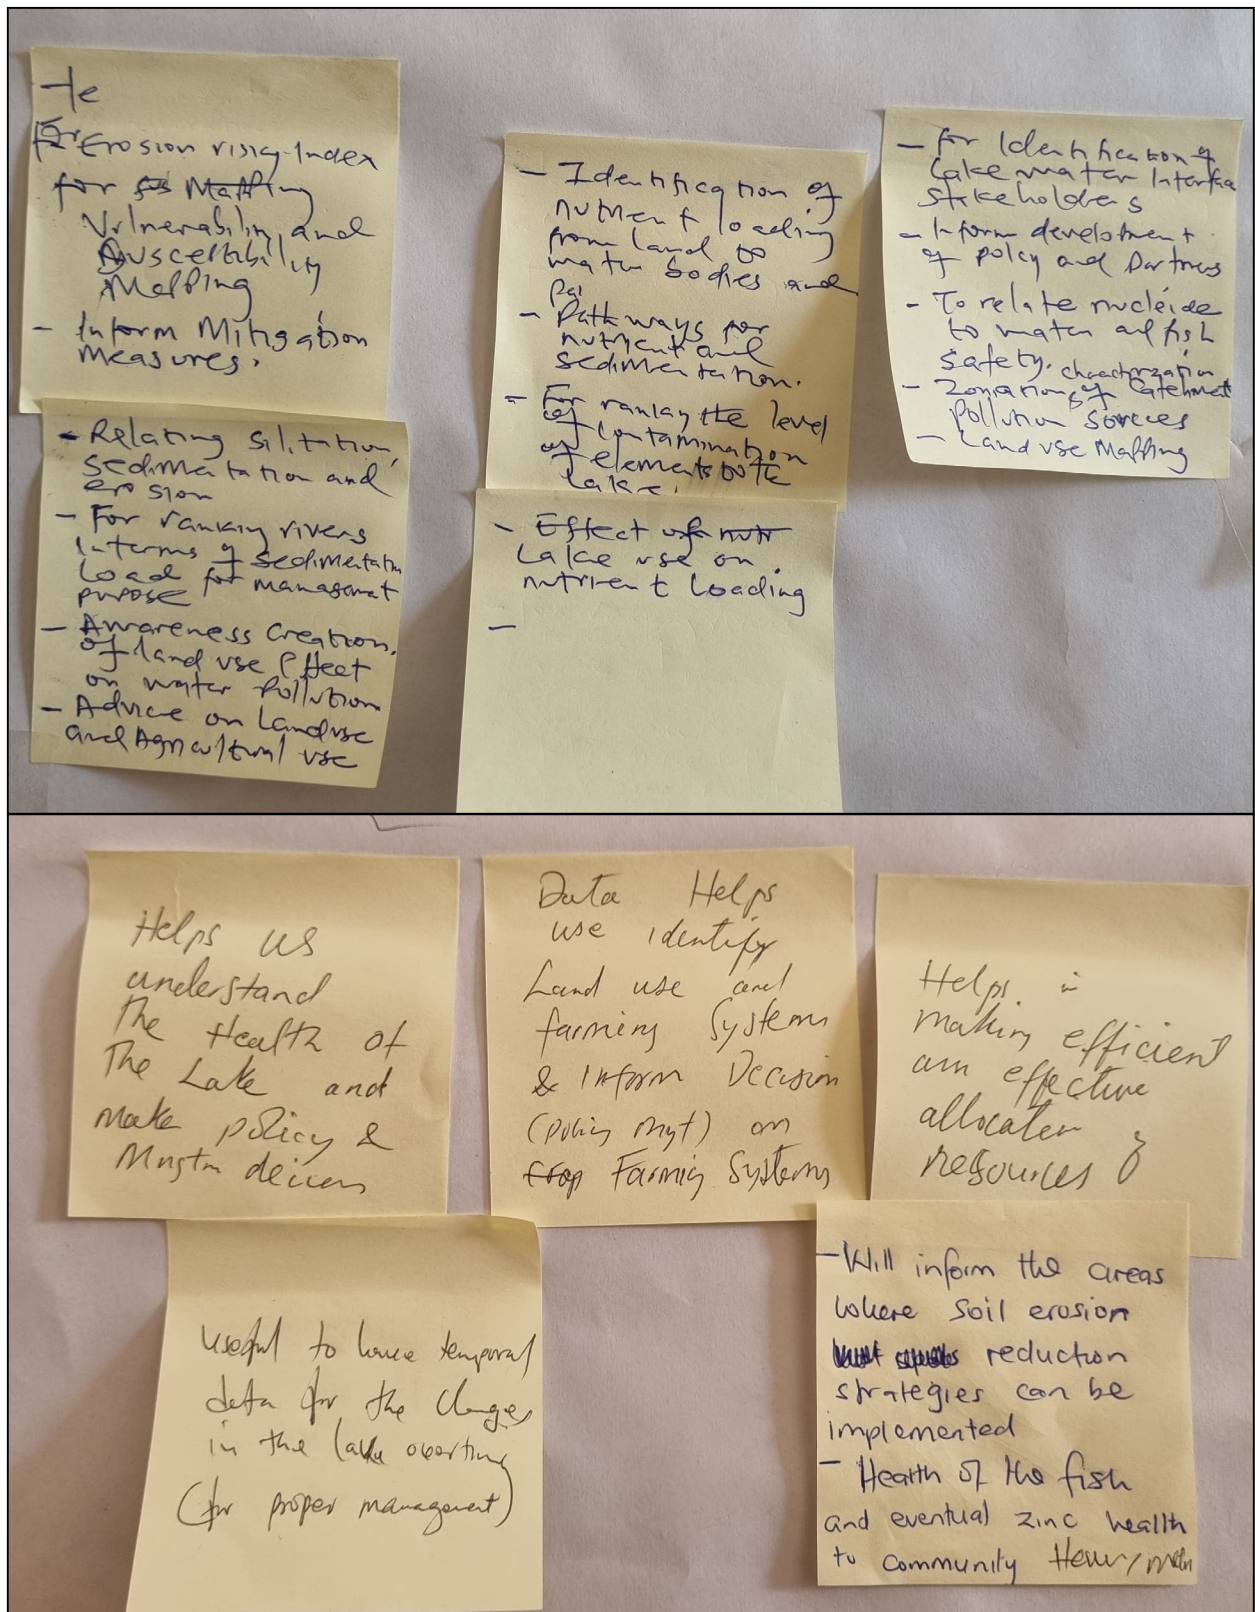 - Te
For Erosion risky Index
for Mapping
Vulnerability and
Suscettibility
Mapping
- Inform Mitigation
measures.
- Relating Siltation,
sedimentation and
erosion
- For ranking rivers
Interms of sedimentation
Load for management
purpose
- Awareness Creation.
of land use effect
on water pollution
- Advice on Landuse
and Agricultural use
- Identification of
nutrient loading
from land to
water bodies and
Pai
- Pathways for
nutrient and
sedimentation.
- For ranking the level
of contamination
of elements
lake.
- Effect of nutr
Lake use on.
nutrient Loading
-
- For Identification of
lake water Interface
stakeholders
- Inform development
of policy and Partners
- To relate nucleide
to water and fish
safety.
characterization
- Zonation of Catchment
Pollution Sources
- Land use Mapping
Helps us
understand
The Health of
The Lake and
make policy &
Mngtm
Data Helps
use identify
Land use and
farming Systems
& Inform Decision
(policy mgt) on
crop Farming Systems
Helps in
making efficient
am effective
allocation
resources of
useful to have temporal
data for the changes
in the lake overtime
(for proper management)
- Will inform the areas
where soil erosion
reduction
strategies can be
implemented
- Health of the fish
and eventual zinc health
to community Heavy metals